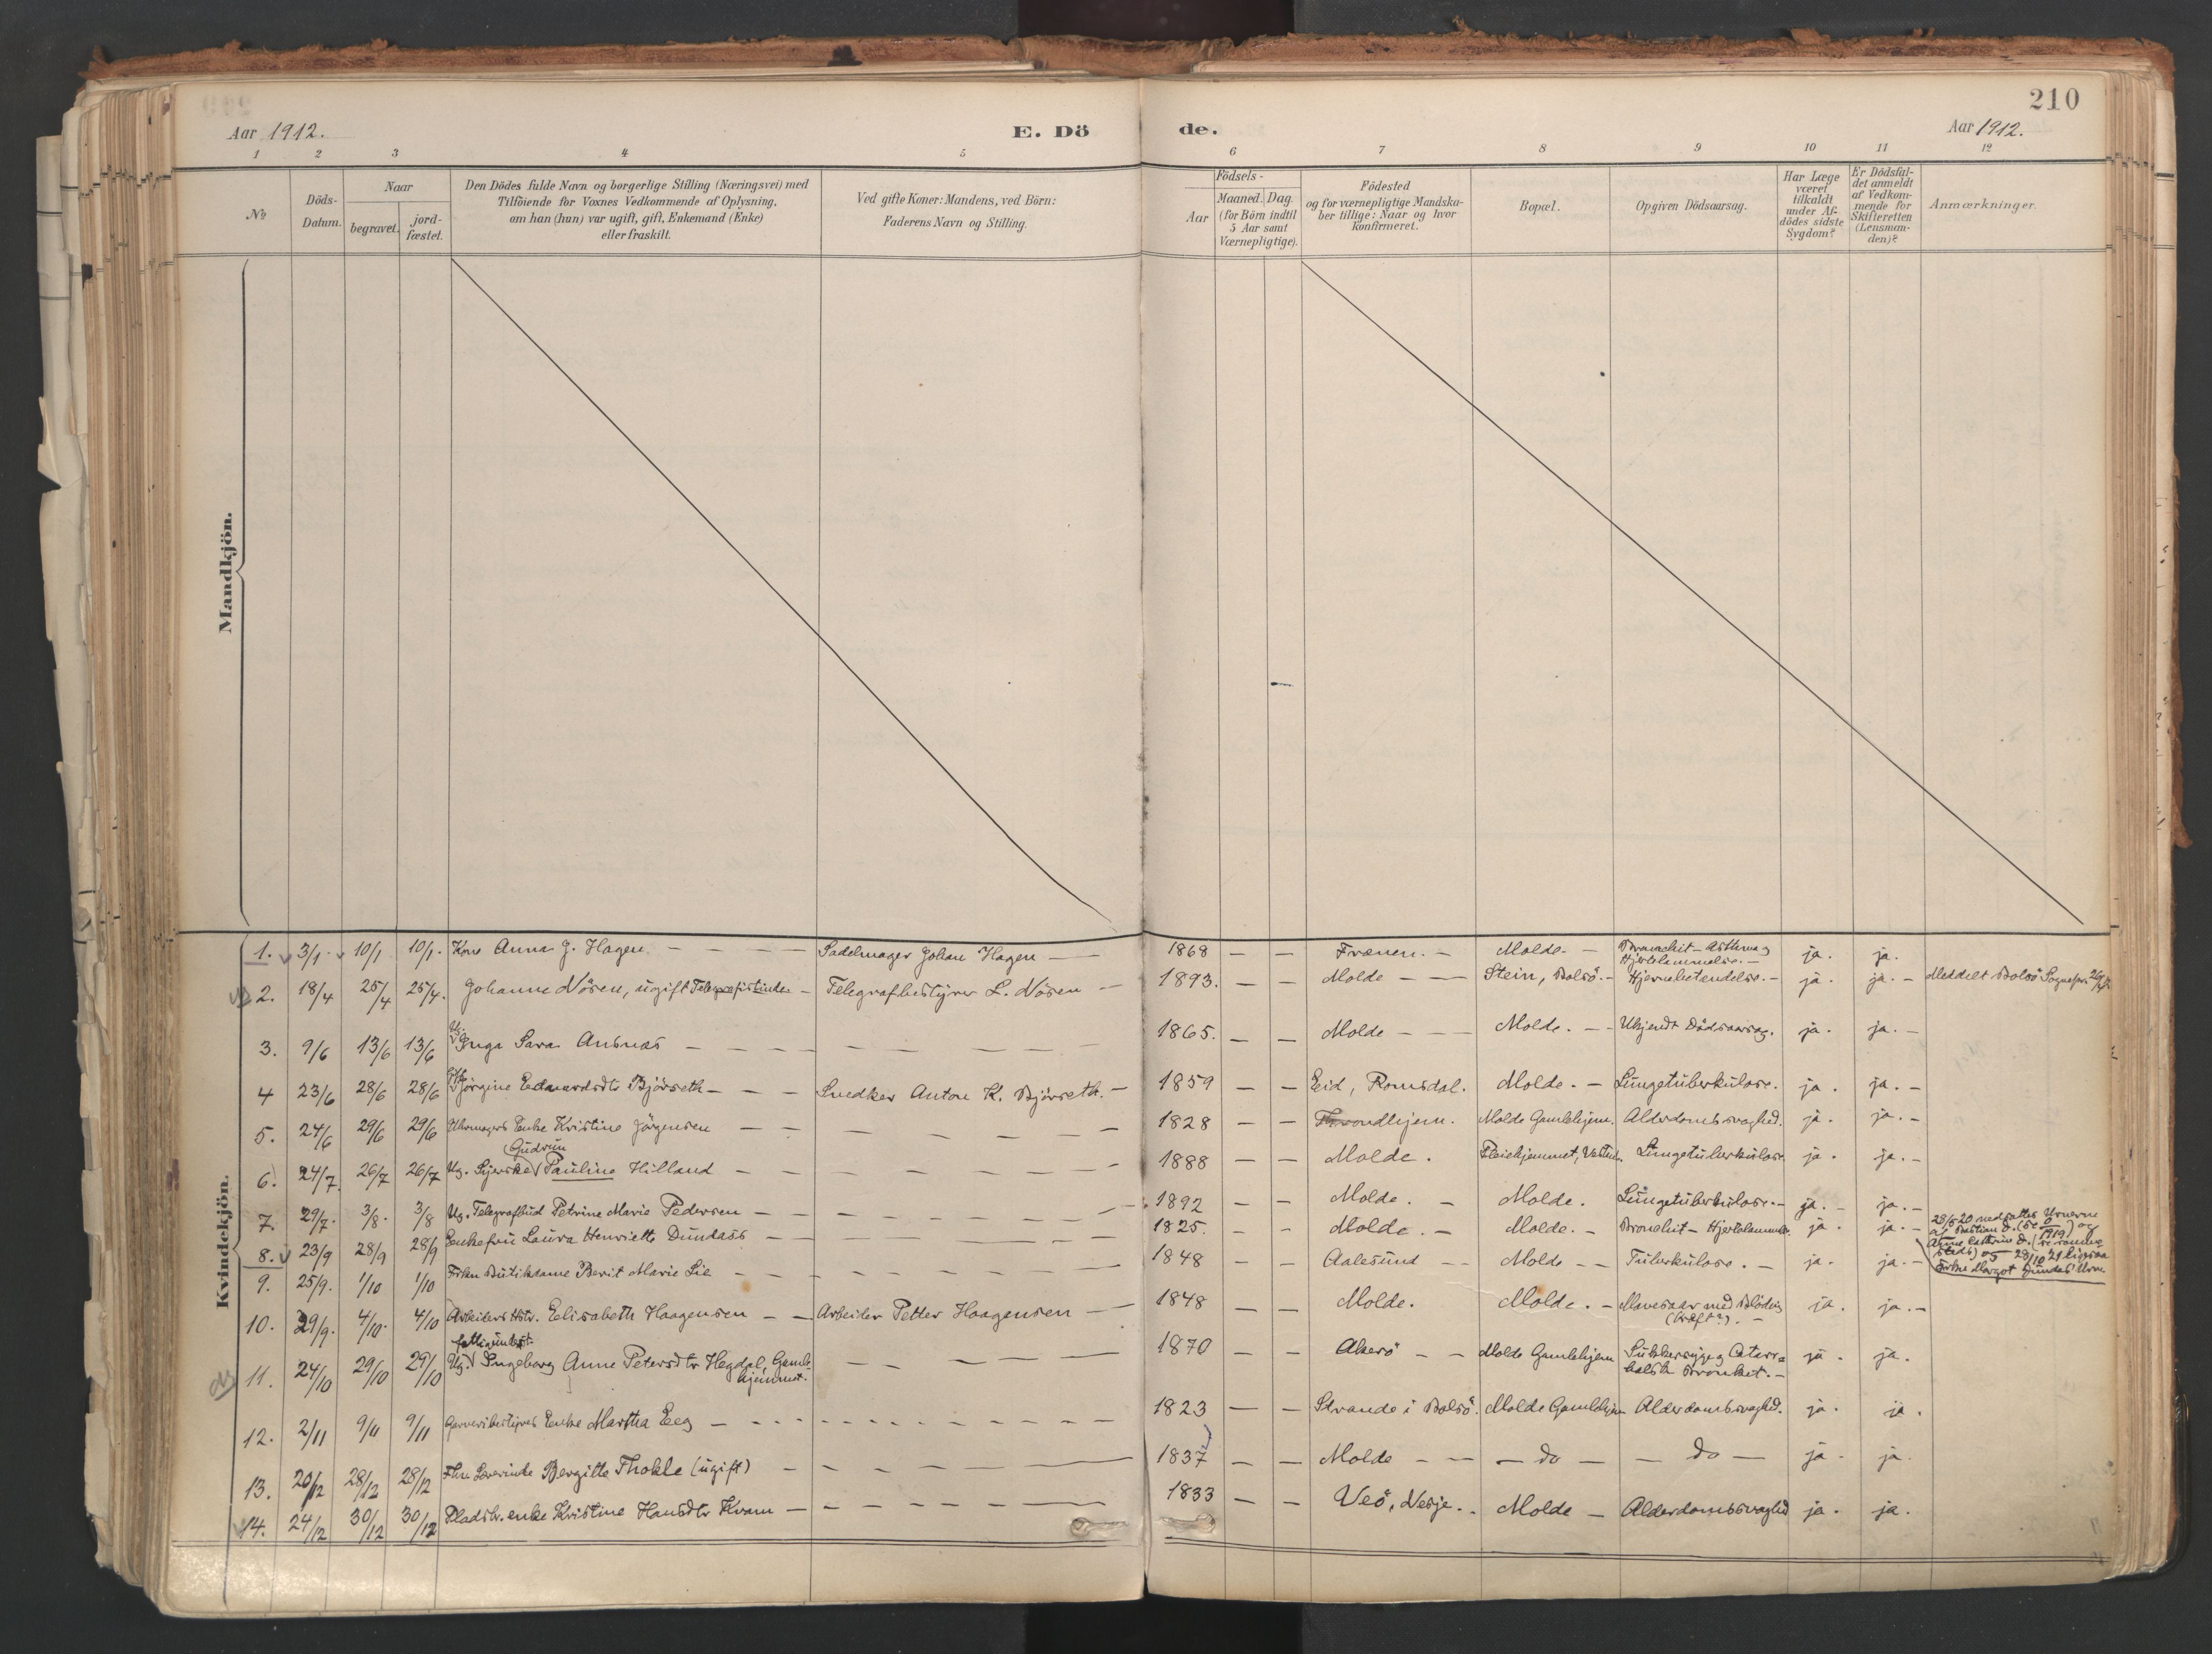 210
Aar 1912. E. Dö de. Aar 1912.
1 2 3 4 5 6 7 8 9 10 11 12
No
Döds-Datum.
Naar
begravet. jord-fæstet.
Den Dödes fulde Navn og borgerlige Stilling (Næringsvei) med
Tilföiende for Voxnes Vedkommende af Oplysning,
om han (hun) var ugift, gift, Enkemand (Enke)
eller fraskilt.
Ved gifte Koner: Mandens, ved Börn:
Faderens Navn og Stilling.
Födsels-
Aar Maaned. Dag.
(for Börn indtil
5 Aar samt
Værnepligtige).
Födested
og for værnepligtige Mandska-
ber tillige: Naar og hvor
konfirmeret.
Bopæl.
Opgiven Dödsaarsag.
Har Læge
været
tilkaldt
under Af-
dödes sidste
Sygdom?
Er Dödsfal-
det anmeldt
af Vedkom-
mende for
Skifteretten
(Lensman-
den)?
Anmærkninger.
Mandkjön.
Kvindekjön.
1. 3/1 10/1 10/1. Kone Anna J. Hagen. — Sadelmager Johan Hagen — 1868 — — Frænen. — Molde. — Bronchit - Asthma og Hjertelammelse. — ja. ja.
2. 18/4 25/4 25/4. Johanne Nösen, ugift Telegrafistinde — Telegrafbestyrer L. Nösen — 1893. — — Molde — Stein, Bolsö. — Hjernebetændelse. — ja. ja. — Meddelt Bolsö Sognepr.
3. 9/6 13/6 13/6 Ug. Inga Sara Ausnæs — 1865. — — Molde — Molde. — Ukjendt Dödsaarsag. ja. ja. —
4 23/6 28/6 28/6 Jörgine Edwardsdtr Björseth — Snedker Anton K. Björseth. — 1859 — — Eid, Romsdal. Molde. — Lungetuberkulose. ja. ja. —
5. 24/6 29/6 29/6 Uhrmagers Enke Kristine Jörgensen — 1828 — — Throndhjem. Molde Gamlehjem. Alderdomssvaghed. ja. ja. —
6. 24/7. 26/7 26/7 Ug. Syerske (Gudrun Pauline Hilland — 1888 — — Molde. Pleiehjemmet, Lungetuberkulose. ja. ja. —
7. 29/7. 3/8. 3/8 Ug. Telegrafbud Petrine Marie Pedersen — 1892 — — Molde. — Molde. Lungetuberkulose. — ja. — ja. —
8. 23/9 28/9 28/9 Enkefru Laura Henriette Dundass — 1825. — — Molde. — Molde. — Bronchit - Hjertelammelse. ja. ja. — 28/5 20 nedsattes Urnerne
af Bastian D. ( 1919) og
Anne Cathrine D. (
steds) og 28/10 21 ligesaa
Frkn Margot Dundas' Urne
9. 25/9. 1/10 1/10 Frkn Butikdame Berit Marie Lie — 1848 — — Aalesund — Molde — Tuberkulose. — ja. ja. —
10. 29/9. 4/10. 4/10 Arbeiders Hstr. Elisabeth Haagensen — Arbeider Petter Haagensen — 1848 — — Molde. Molde. — Mavesaar med Blödning (Kræft?). — ja. ja. —
11. 24/10 29/10 29/10 Ug. fattigunderst. Ingeborg Anne Petersdtr Hegdal, Gamlehjemmet. — 1870 — — Akerö — Molde Gamlehjem Sukkersyge og Catarrhalsk Bronkit. — ja. ja.
12. 2/11 9/11 9/11 Garveribestyrers Enke Martha Eeg — 1823 — — Strande i Bolsö. Molde Gamlehjem Alderdomssvaghed. ja. ja.
13. 20/12 28/12 28/12 Fhv Lærerinde Bergitte Thokle (ugift) — 1837 — — Molde — — do — — do — ja. ja.
14. 24/12 30/12 30/12 Pladsbr. enke Kristine Hansdtr Kvam — 1833 — — Veö, Nesje. Molde — Alderdomssvaghed ja. ja.